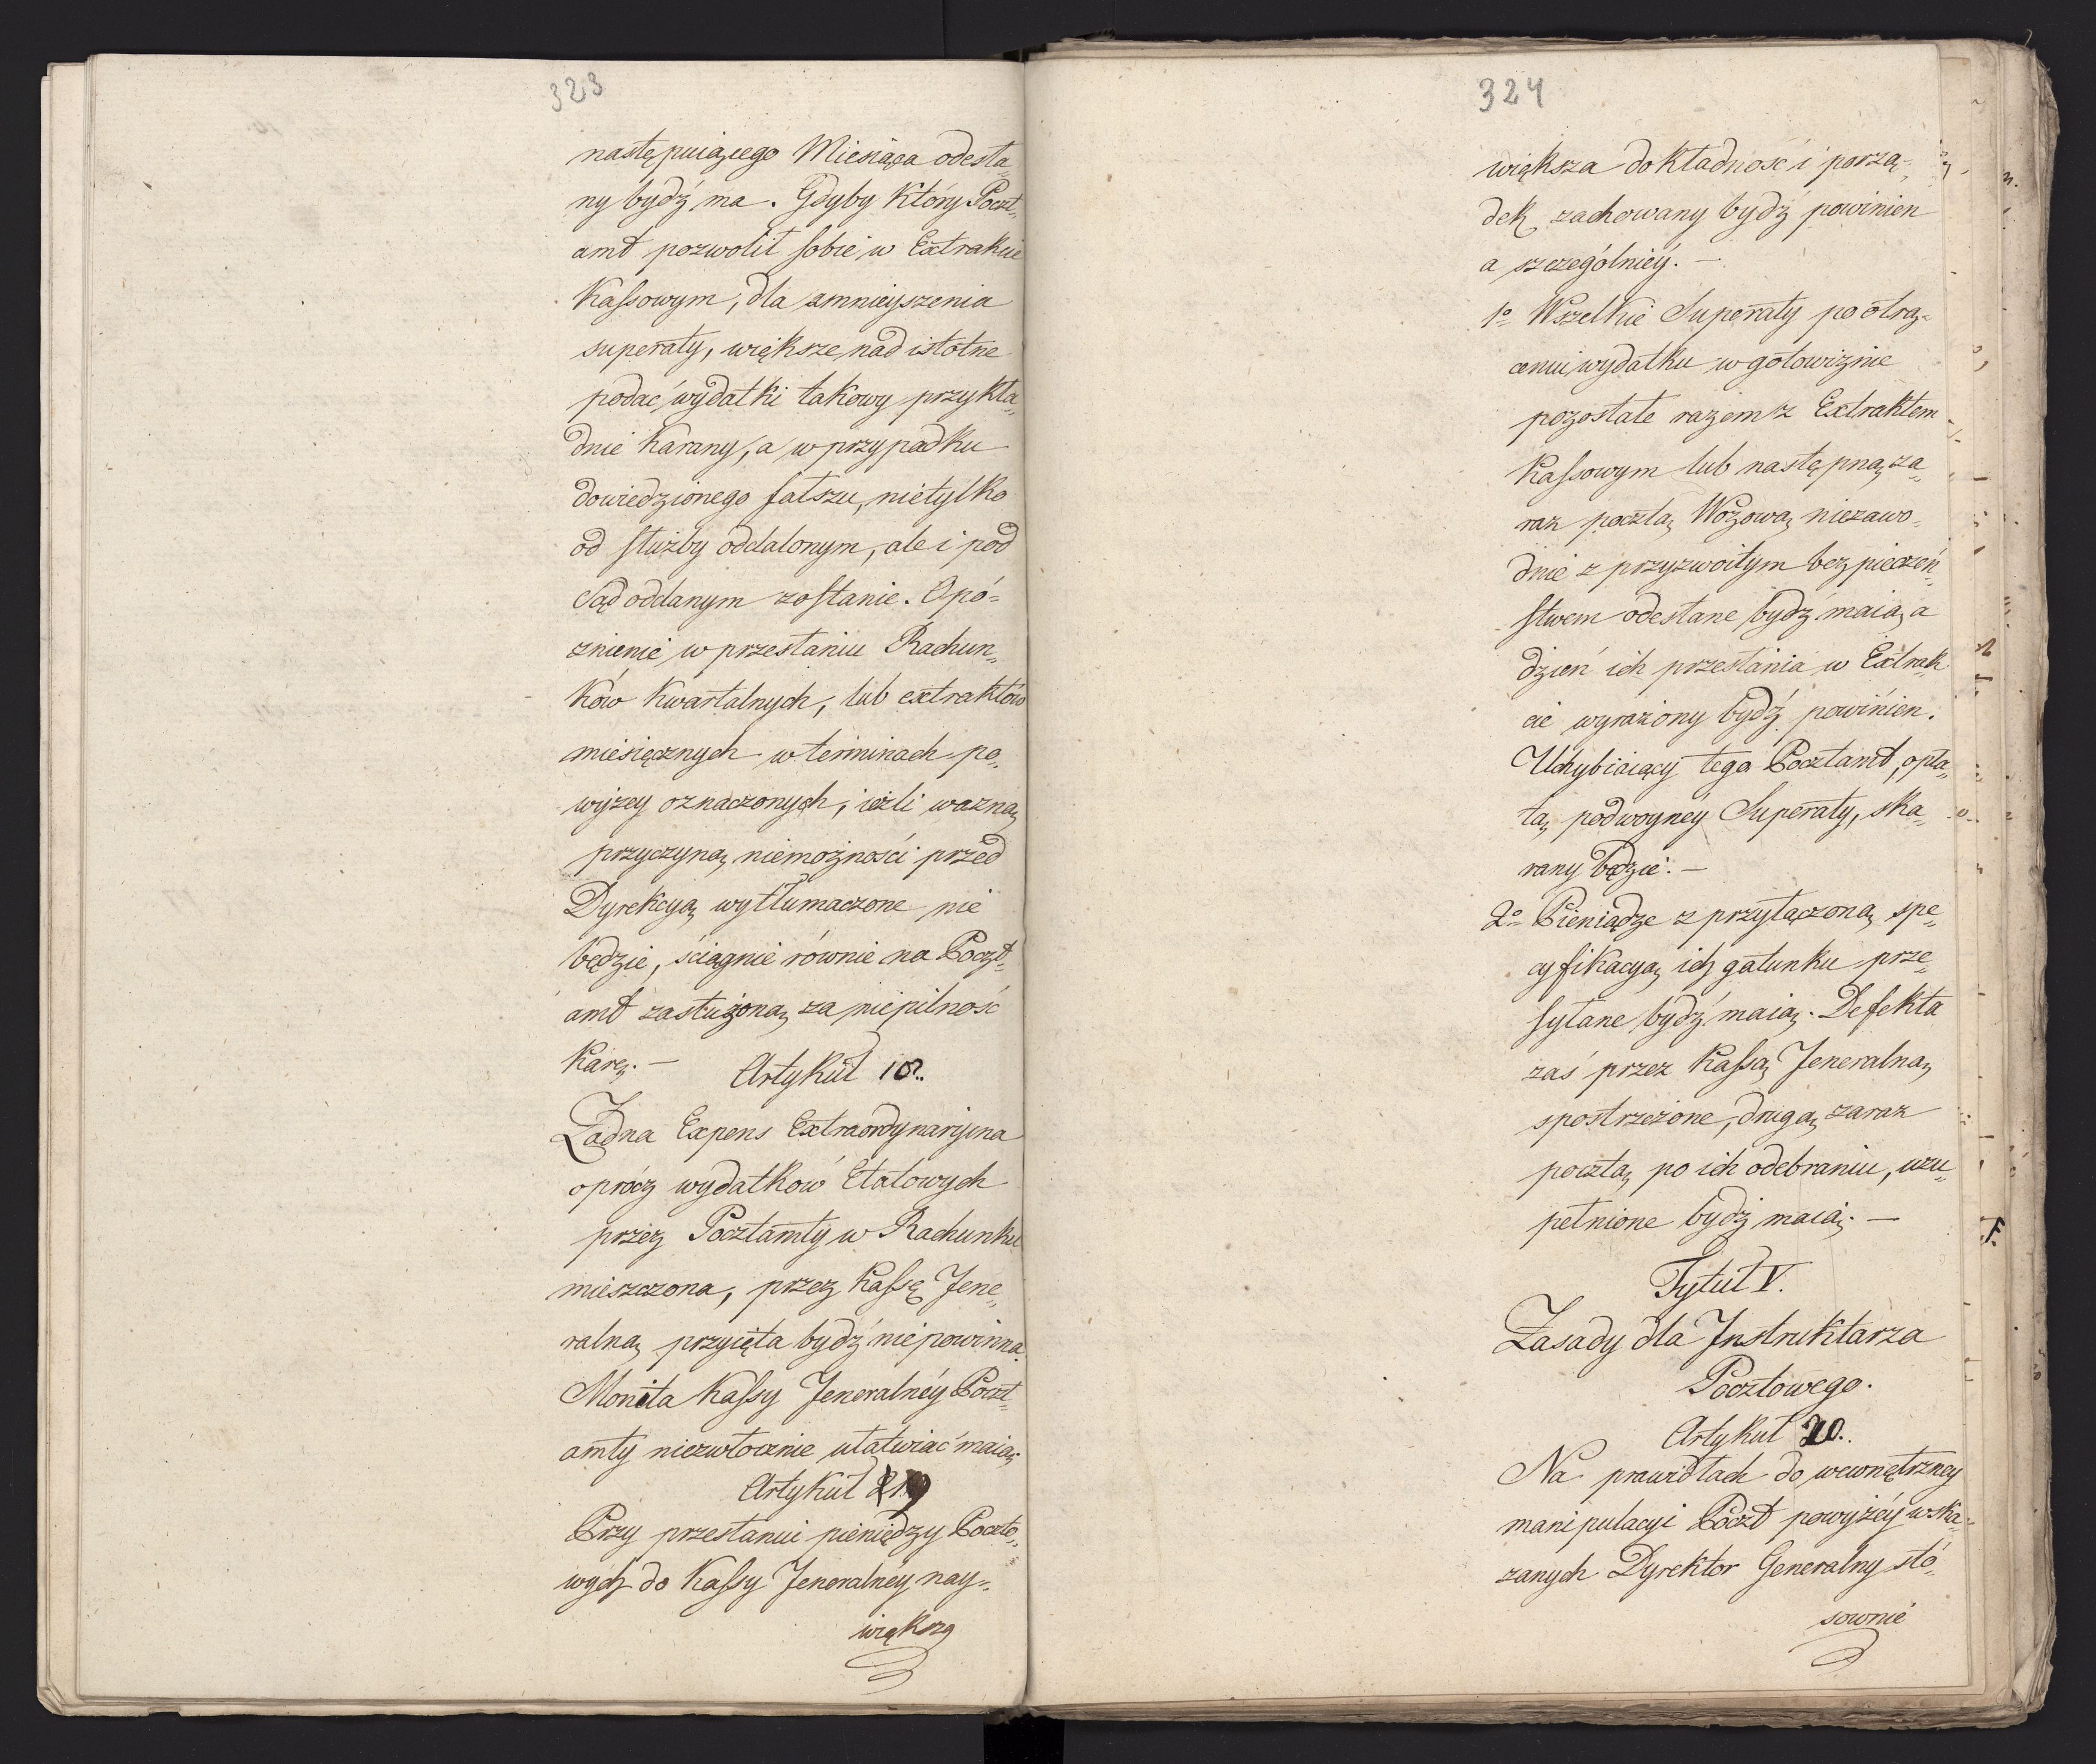 323
następuiącego Miesiąca odesła„
ny bydź ma. Gdyby który Poczt„
amt pozwolił sobie w Extrakcie
Kassowym, dla zmnieyszenia
superaty, większe nad istotne
podać wydatki takowy przykła„
dnie karany, a w przypadku
dowiedzionego fałszu, nietylko
od służby oddalonym, ale i pod
Sąd oddanym zostanie. Opó=
znienie w przesłaniu Rachun„
ków kwartalnych, lub extraktów
miesięcznych w terminach po„
wyżey oznaczonych, ieżli wazną
przyczyną niemożności przed
Dyrekcyą wytłumaczone nie
będzie, ściągnie równie na Poczt„
amt zasłużoną za niepilność
karę. —
Artykuł 18..
Żadna Expens Extraordynaryina
oprócz wydatków Etatowych
przez Pocztamty w Rachunku
mieszczona, przez Kassę Jene„
ralną przyięta bydź nie powinna.
Monita Kassy Jeneralnéy Poczt„
amty niezwłocznie ułatwiać maią.
Artykuł 19
Przy przesłaniu pieniędzy Poczto„
wych do Kassy Jeneralney nay„
większa
324
większa dokładność i porzą„
dek zachowany bydź powinien
a szczególniéy. —
1o Wszelkie Superaty po otrą„
ceniu wydatku w gotowiznie
pozostałe razem z Extraktem
Kassowym lub następną za„
raz pocztą Wozową niezawo„
dnie z przyzwoitym bezpieczeń„
stwem odesłane bydź maią a
dzień ich przesłania w Extrak„
cie wyrażony bydź powinien.
Uchybiaiący tego Pocztamt, opła„
tą podwoyney Superaty, ska„
rany będzie. —
2o Pieniądze z przyłączoną spe„
cyfikacyą ich gatunku prze„
syłane bydź maią. Defekta
zaś przez Kassą Jeneralną
spostrzeżone, drugą zaraz
pocztą po ich odebraniu, uzu„
pełnione bydź maią. —
Tytuł V.
Zasady dla Instruktarza
Pocztowego.
Artykuł 20..
Na prawidłach do wewnętrzney
manipulacyi Poczt powyżéy wska„
zanych Dyrektor Generalny sto„
sownie